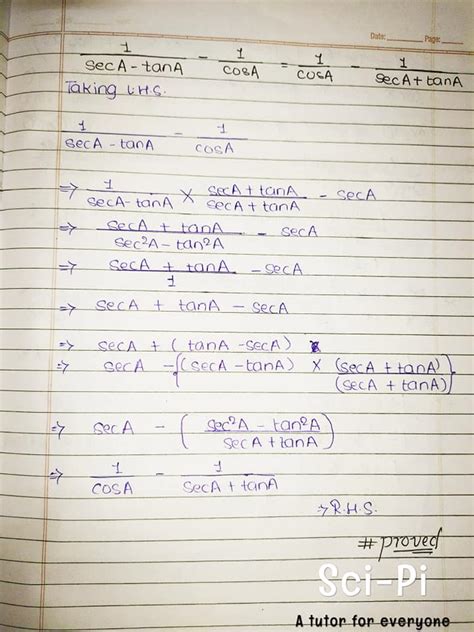 Date: Page:
1/(secA - tanA) - 1/cosA = 1/cosA - 1/(secA + tanA)
Taking L.H.S.
1/(secA - tanA) - 1/cosA
⇒ 1/(secA - tanA) × (secA + tanA)/(secA + tanA) - secA
⇒ (secA + tanA)/(sec²A - tan²A) - secA
⇒ (secA + tanA)/1 - secA
⇒ secA + tanA - secA
⇒ secA + (tanA - secA)
⇒ secA - {(secA - tanA) × (secA + tanA)/(secA + tanA)}
⇒ secA - ((sec²A - tan²A)/(secA + tanA))
⇒ 1/cosA - 1/(secA + tanA)
⇒ R.H.S.
# proved
Sci-Pi
A tutor for everyone